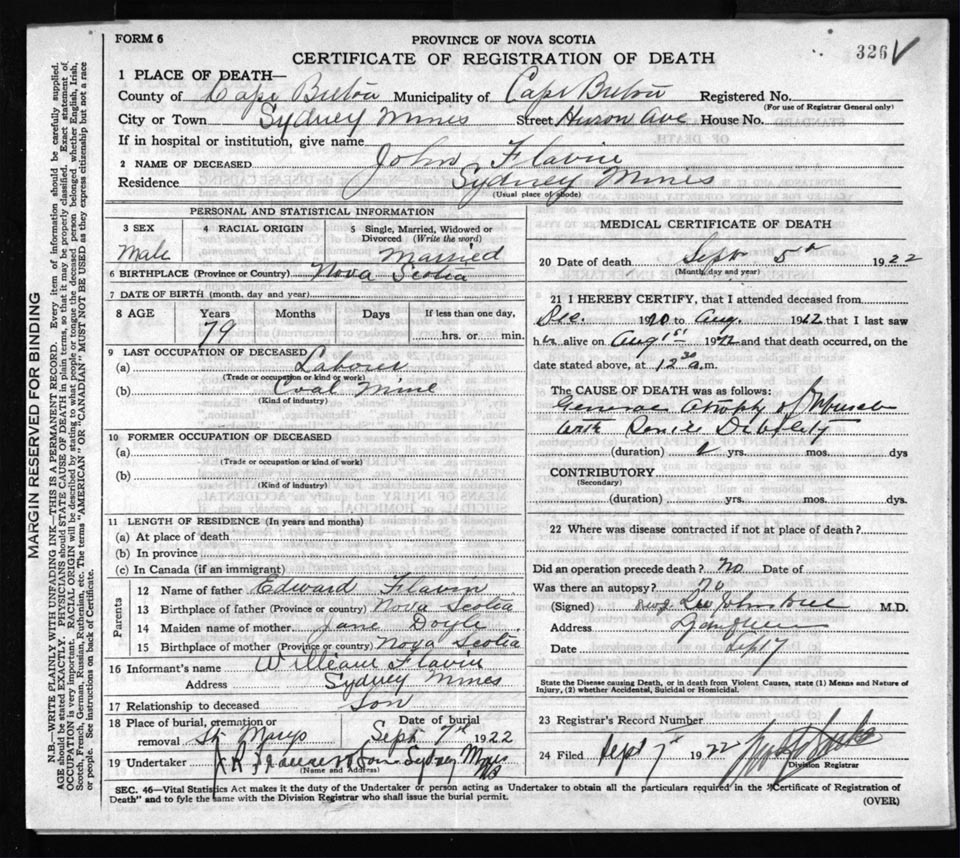 FORM 6
PROVINCE OF NOVA SCOTIA
326
CERTIFICATE OF REGISTRATION OF DEATH
1 PLACE OF DEATH—
County of Cape Breton Municipality of Cape Breton Registered No.
(For use of Registrar General only)
City or Town Sydney Mines Street Huron Ave House No.
If in hospital or institution, give name
2 NAME OF DECEASED John Flavin
Residence Sydney Mines
(Usual place of abode)
PERSONAL AND STATISTICAL INFORMATION
3 SEX
Male
4 RACIAL ORIGIN
5 Single, Married, Widowed or Divorced (Write the word)
Married
6 BIRTHPLACE (Province or Country) Nova Scotia
7 DATE OF BIRTH (month, day and year)
8 AGE Years Months Days If less than one day,
79 hrs. or min.
9 LAST OCCUPATION OF DECEASED
(a) Labour
(Trade or occupation or kind of work)
(b) Coal Mine
(Kind of industry)
10 FORMER OCCUPATION OF DECEASED
(a)
(Trade or occupation or kind of work)
(b)
(Kind of industry)
11 LENGTH OF RESIDENCE (In years and months)
(a) At place of death
(b) In province
(c) In Canada (if an immigrant)
Parents
12 Name of father Edward Flavin
13 Birthplace of father (Province or country) Nova Scotia
14 Maiden name of mother Jane Doyle
15 Birthplace of mother (Province or country) Nova Scotia
16 Informant's name William Flavin
Address Sydney Mines
17 Relationship to deceased Son
18 Place of burial, cremation or removal St. Marys
Date of burial Sept 7th 1922
19 Undertaker Sydney Mines
(Name and Address)
MEDICAL CERTIFICATE OF DEATH
20 Date of death Sept 5th 1922
(Month, day and year)
21 I HEREBY CERTIFY, that I attended deceased from
Dec. 1920 to Aug. 1922 that I last saw
h alive on Aug 1st 1922 and that death occurred, on the
date stated above, at 12 30 a.m.
The CAUSE OF DEATH was as follows:
General Atrophy of Muscles
with Senile Debility
(duration) 2 yrs. mos. dys
CONTRIBUTORY
(Secondary)
(duration) yrs. mos. dys.
22 Where was disease contracted if not at place of death?
Did an operation precede death? No Date of
Was there an autopsy? No
(Signed) Johnstone M.D.
Address
Date Sept 7
State the Disease causing Death, or in death from Violent Causes, state (1) Means and Nature of Injury, (2) whether Accidental, Suicidal or Homicidal.
23 Registrar's Record Number
24 Filed Sept 7th 1922
Division Registrar
SEC. 46—Vital Statistics Act makes it the duty of the Undertaker or person acting as Undertaker to obtain all the particulars required in the "Certificate of Registration of
Death" and to fyle the same with the Division Registrar who shall issue the burial permit.
(OVER)
MARGIN RESERVED FOR BINDING
N.B.—WRITE PLAINLY WITH UNFADING INK—THIS IS A PERMANENT RECORD. Every item of information should be carefully supplied.
AGE should be stated EXACTLY. PHYSICIANS should STATE CAUSE OF DEATH in plain terms, so that it may be properly classified. Exact statement of
OCCUPATION is very important. RACIAL ORIGIN will be described by stating to what people or tongue the deceased person belonged, whether English, Irish,
Scotch, French, German, Russian, Ruthenian, etc. The terms "AMERICAN" OR "CANADIAN" MUST NOT BE USED as they express citizenship but not a race
or people. See instructions on back of Certificate.